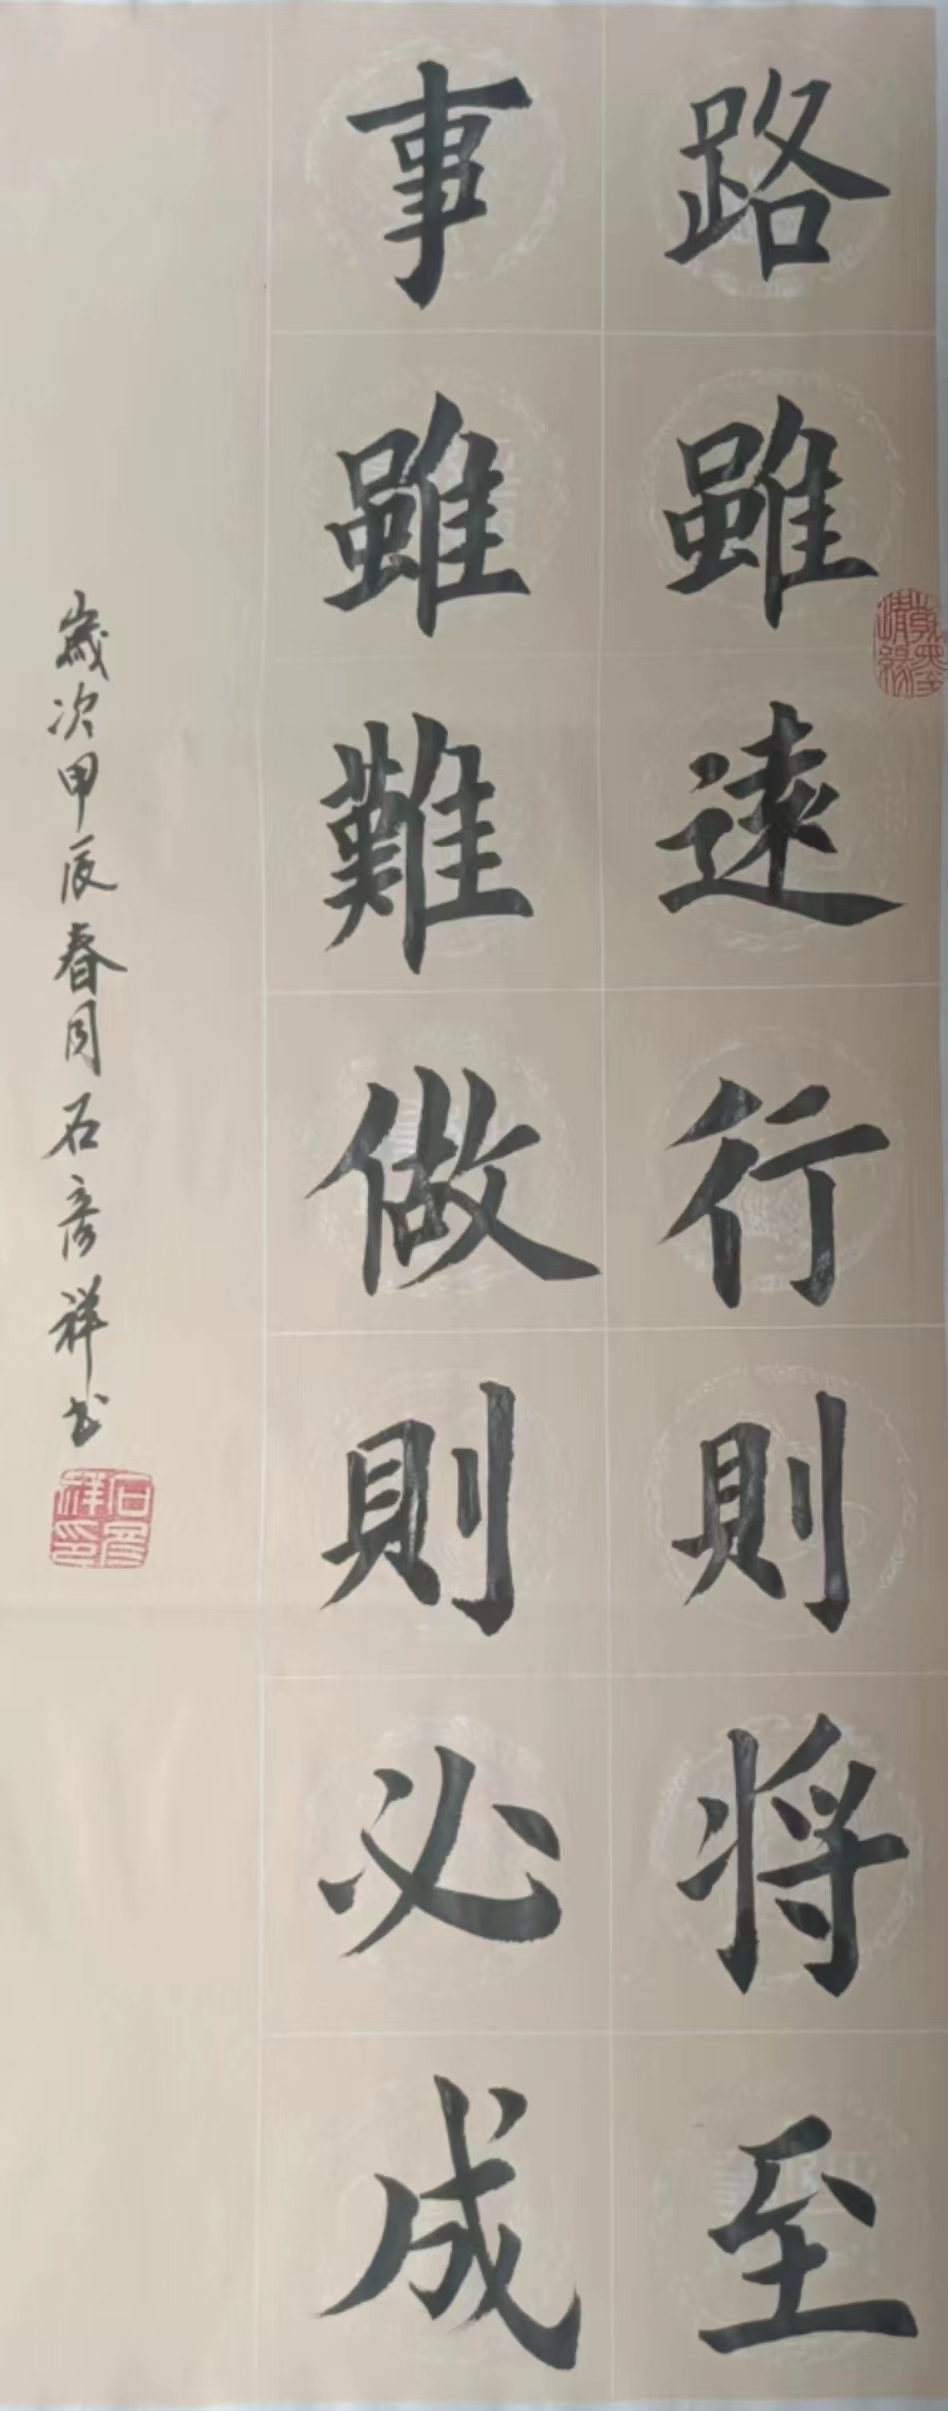 路雖遠行則将至
事雖難做則必成
歲次甲辰春月石彦祥书
石彦祥印